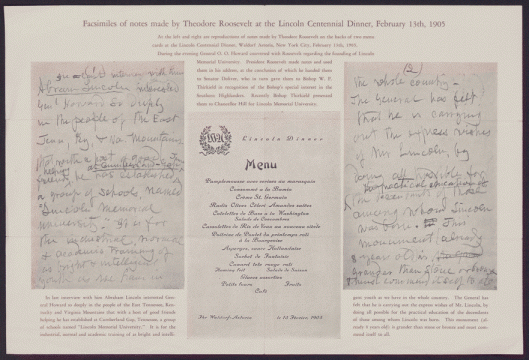 Facsimiles of notes made by Theodore Roosevelt at the Lincoln Centennial Dinner, February 13th, 1905
At the left and right are reproductions of notes made by Theodore Roosevelt on the backs of two menu
cards at the Lincoln Centennial Dinner, Waldorf Astoria, New York City, February 13th, 1905.
During the evening General O. O. Howard conversed with Roosevelt regarding the founding of Lincoln
Memorial University. President Roosevelt made notes and used
them in his address, at the conclusion of which he handed them
to Senator Dolliver, who in turn gave them to Bishop W. F.
Thirkield in recognition of the Bishop's special interest in the
Southern Highlanders. Recently Bishop Thirkield presented
them to Chancellor Hill for Lincoln Memorial University.
interview with him
Abram Lincoln interested
Gen'l Howard so deeply
in the people of the East
Tenn, Ky, & Va. Mountains
that with a
he has established
a group of schools, named
Lincoln Memorial
University. It is for
the industrial, normal
& academic training of
as bright & intelligent
youth as we have in
Lincoln Dinner
Menu
Pamplemousse aux cerises au marasquin
Consommé à la
Crème St. Germain
Radis Olives Céleri Amandes salées
de Bass à la Washington
Salade de Concombres
de Ris de Veau au nouveau siècle
Poitrine de Poulet de printemps rôti
à la Bourgeoise
Asperges, sauce Hollandaise
Sorbet de Fantaisie
Canard tête rouge rôti
Salade de Saison
Glaces assorties
Petits fours Fruits
Café
The Waldorf-Astoria le 13 Février 1905
(2)
the whole country.
The General has felt
that he is carrying
out the express wishes
of Mr. Lincoln by
doing all possible for
the practical education of
the descendants of those
among whom Lincoln
was born. This
monument, already
8 years old, is
grander than stone or bronze
& must command
In last interview with him Abraham Lincoln interested Gen-
eral Howard so deeply in the people of the East Tennessee, Ken-
tucky and Virginia Mountains that with a host of good friends
helping he has established at Cumberland Gap, Tennessee, a group
of schools named "Lincoln Memorial University." It is for the
industrial, normal and academic training of as bright and intelli-
gent youth as we have in the whole country. The General has
felt that he is carrying out the express wishes of Mr. Lincoln, by
doing all possible for the practical education of the descendants
of those among whom Lincoln was born. This monument (al-
ready 8 years old) is grander than stone or bronze and must com-
mend itself to all.